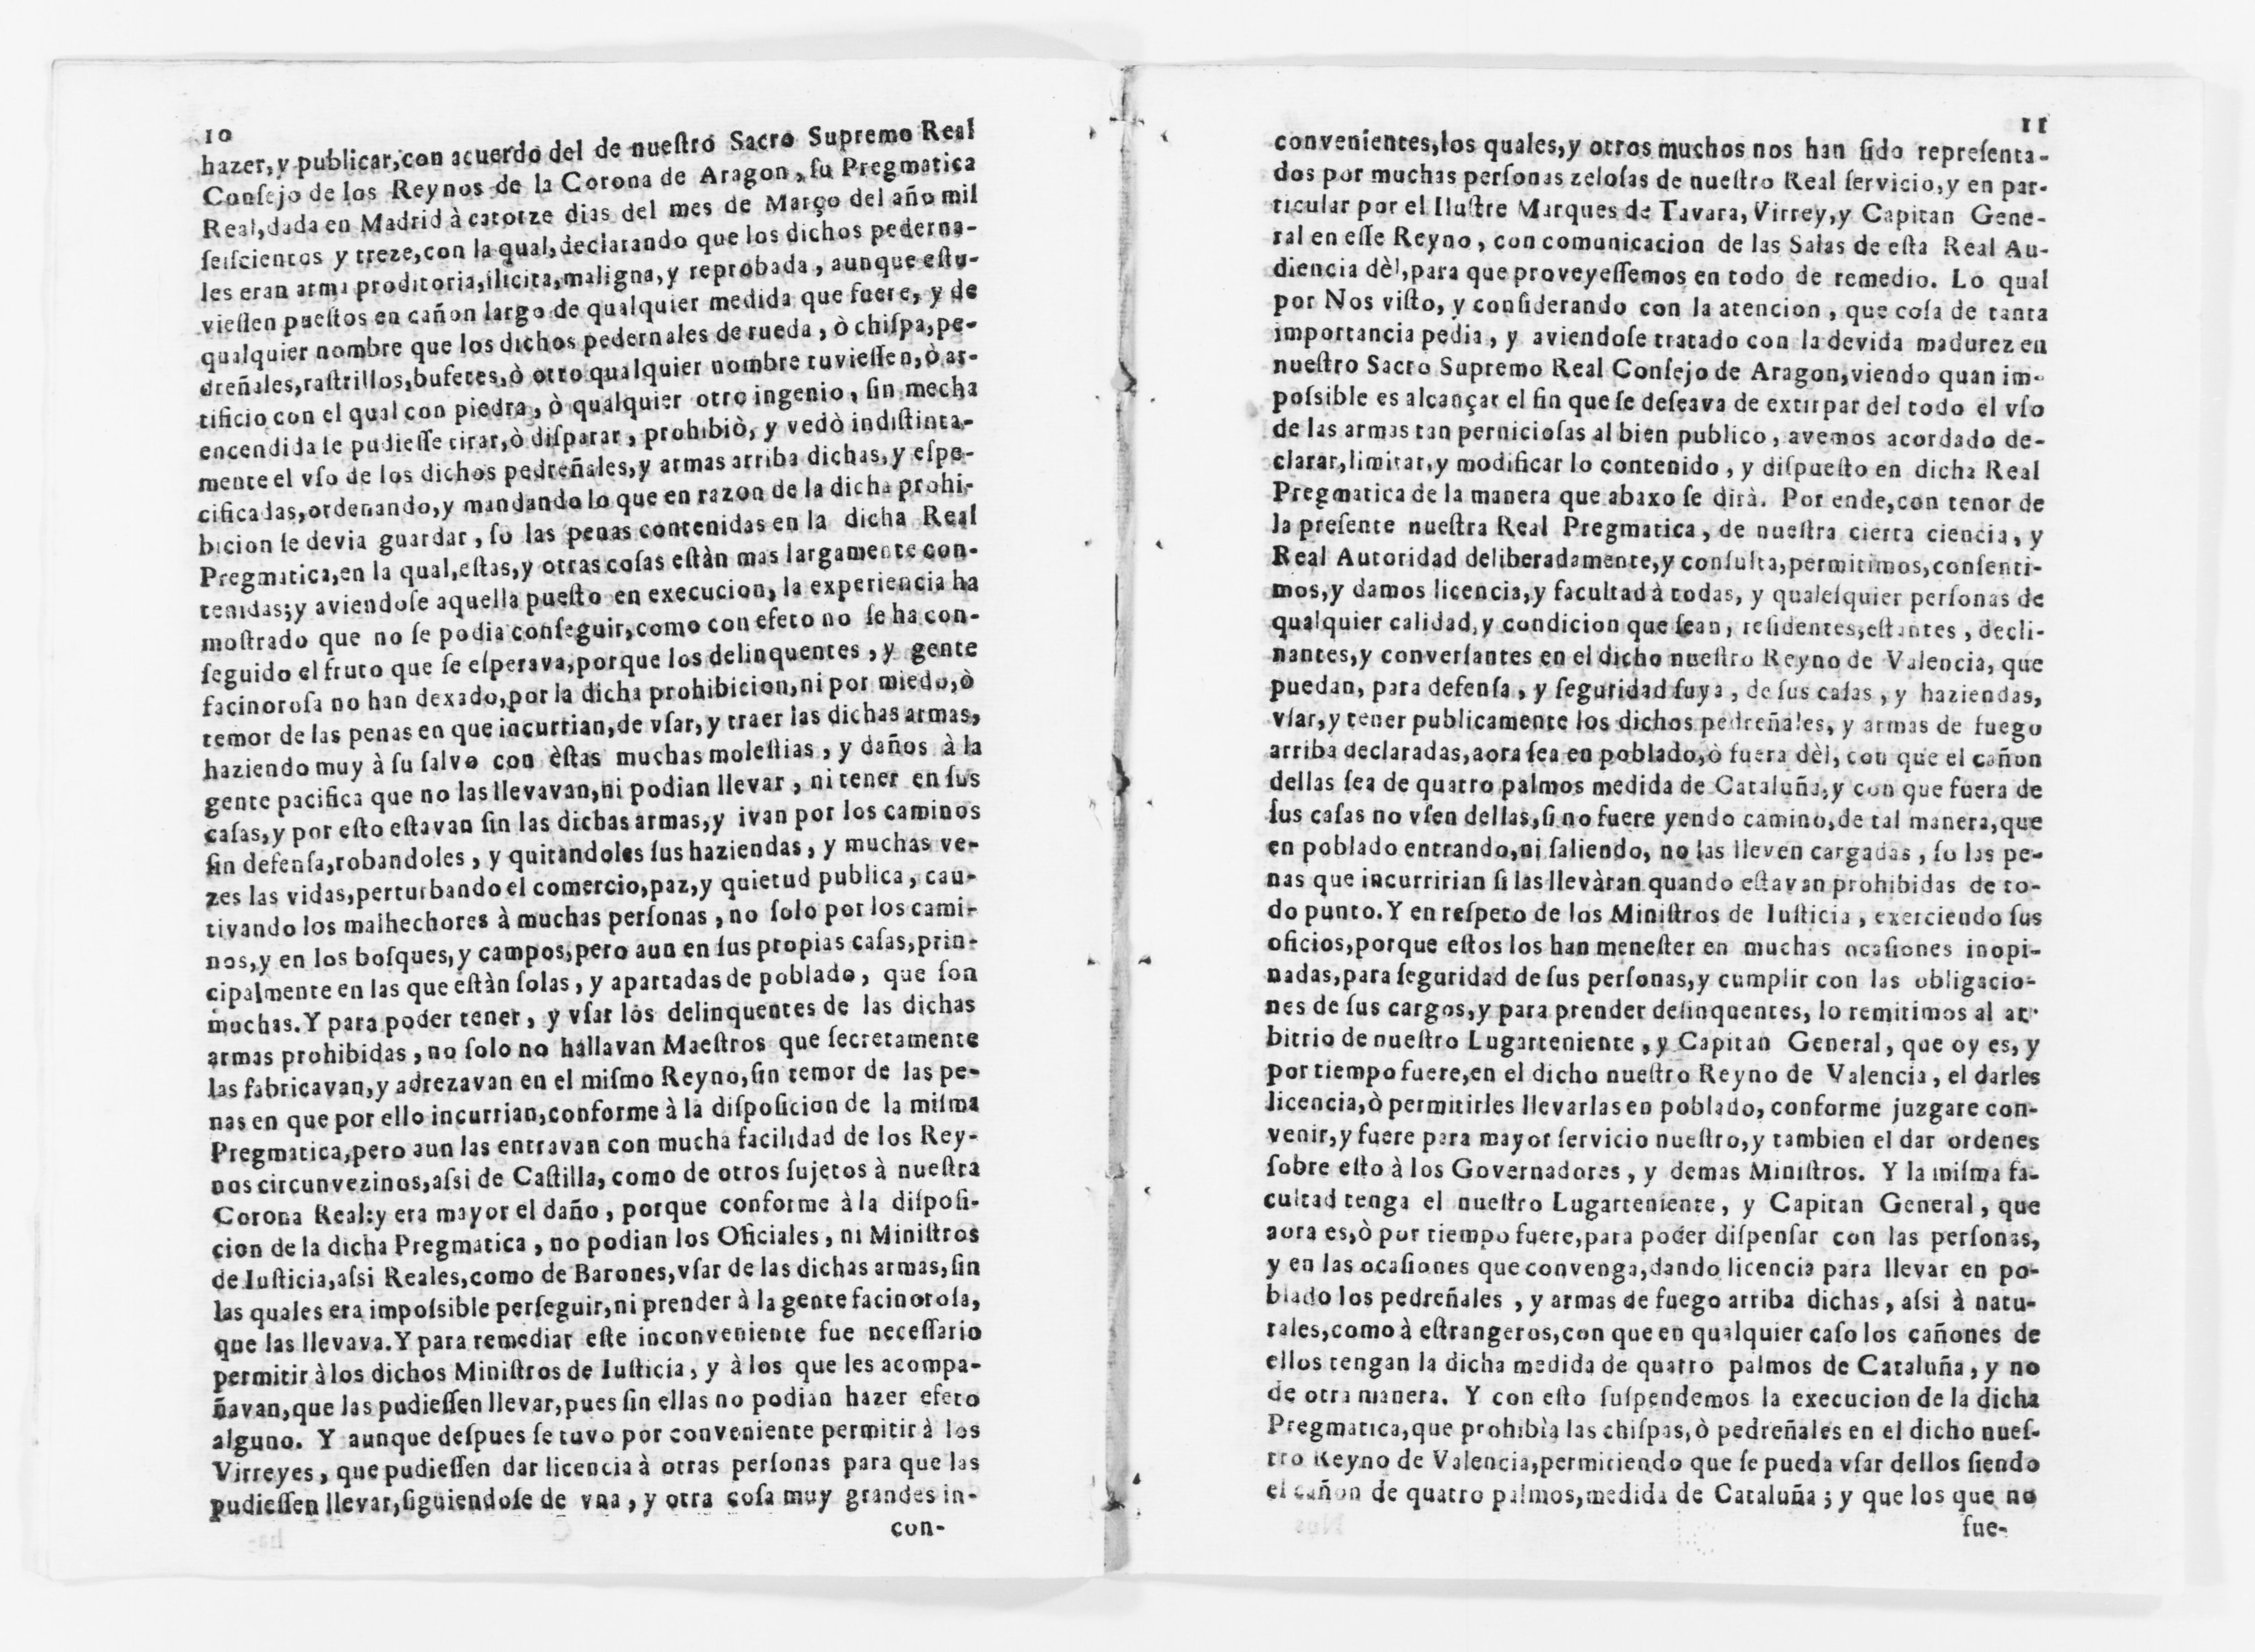 10
hazer, y publicar, con acuerdo del de nueſtro Sacro Supremo Real
Conſejo de los Reynos de la Corona de Aragon, ſu Pregmatica
Real, dada en Madrid à catorze dias del mes de Março del año mil
ſeiſcientos y treze, con la qual, declarando que los dichos pederna-
les eran arma proditoria, ilicita, maligna, y reprobada, aunque eſtu-
vieſſen pueſtos en cañon largo de qualquier medida que fuere, y de
qualquier nombre que los dichos pedernales de rueda, ò chiſpa, pe-
dreñales, raſtrillos, bufetes, ò otro qualquier nombre tuvieſſen, ò ar-
tificio con el qual con piedra, ò qualquier otro ingenio, ſin mecha
encendida ſe pudieſſe tirar, ò diſparar, prohibiò, y vedò indiſtinta-
mente el vſo de los dichos pedreñales, y armas arriba dichas, y eſpe-
cificadas, ordenando, y mandando lo que en razon de la dicha prohi-
bicion ſe devia guardar, ſo las penas contenidas en la dicha Real
Pregmatica, en la qual, eſtas, y otras coſas eſtàn mas largamente con-
tenidas; y aviendoſe aquella pueſto en execucion, la experiencia ha
moſtrado que no ſe podia conſeguir, como con efeto no ſe ha con-
ſeguido el fruto que ſe eſperava, porque los delinquentes, y gente
facinoroſa no han dexado, por la dicha prohibicion, ni por miedo, ò
temor de las penas en que incurrian, de vſar, y traer las dichas armas,
haziendo muy à ſu ſalvo con èſtas muchas moleſtias, y daños à la
gente pacifica que no las llevavan, ni podian llevar, ni tener en ſus
caſas, y por eſto eſtavan ſin las dichas armas, y ivan por los caminos
ſin defenſa, robandoles, y quitandoles ſus haziendas, y muchas ve-
zes las vidas, perturbando el comercio, paz, y quietud publica, cau-
tivando los malhechores à muchas perſonas, no ſolo por los cami-
nos, y en los boſques, y campos, pero aun en ſus propias caſas, prin-
cipalmente en las que eſtàn ſolas, y apartadas de poblado, que ſon
muchas. Y para poder tener, y vſar los delinquentes de las dichas
armas prohibidas, no ſolo no hallavan Maeſtros que ſecretamente
las fabricavan, y adrezavan en el miſmo Reyno, ſin temor de las pe-
nas en que por ello incurrian, conforme à la diſpoſicion de la miſma
Pregmatica, pero aun las entravan con mucha facilidad de los Rey-
nos circunvezinos, aſsi de Caſtilla, como de otros ſujetos à nueſtra
Corona Real: y era mayor el daño, porque conforme à la diſpoſi-
cion de la dicha Pregmatica, no podian los Oficiales, ni Miniſtros
de Iuſticia, aſsi Reales, como de Barones, vſar de las dichas armas, ſin
las quales era impoſsible perſeguir, ni prender à la gente facinoroſa,
que las llevava. Y para remediar eſte inconveniente fue neceſſario
permitir à los dichos Miniſtros de Iuſticia, y à los que les acompa-
ñavan, que las pudieſſen llevar, pues ſin ellas no podian hazer efeto
alguno. Y aunque deſpues ſe tuvo por conveniente permitir à los
Virreyes, que pudieſſen dar licencia à otras perſonas para que las
pudieſſen llevar, ſiguiendoſe de vna, y otra coſa muy grandes in-
con-
11
convenientes, los quales, y otros muchos nos han ſido repreſenta-
dos por muchas perſonas zeloſas de nueſtro Real ſervicio, y en par-
ticular por el Iluſtre Marques de Tavara, Virrey, y Capitan Gene-
ral en eſſe Reyno, con comunicacion de las Salas de eſta Real Au-
diencia dèl, para que proveyeſſemos en todo de remedio. Lo qual
por Nos viſto, y conſiderando con la atencion, que coſa de tanta
importancia pedia, y aviendoſe tratado con la devida madurez en
nueſtro Sacro Supremo Real Conſejo de Aragon, viendo quan im-
poſsible es alcançar el fin que ſe deſeava de extirpar del todo el vſo
de las armas tan pernicioſas al bien publico, avemos acordado de-
clarar, limitar, y modificar lo contenido, y diſpueſto en dicha Real
Pregmatica de la manera que abaxo ſe dirà. Por ende, con tenor de
la preſente nueſtra Real Pregmatica, de nueſtra cierta ciencia, y
Real Autoridad deliberadamente, y conſulta, permitimos, conſenti-
mos, y damos licencia, y facultad à todas, y qualeſquier perſonas de
qualquier calidad, y condicion que ſean, reſidentes, eſtantes, decli-
nantes, y converſantes en el dicho nueſtro Reyno de Valencia, que
puedan, para defenſa, y ſeguridad ſuya, de ſus caſas, y haziendas,
vſar, y tener publicamente los dichos pedreñales, y armas de fuego
arriba declaradas, aora ſea en poblado, ò fuera dèl, con que el cañon
dellas ſea de quatro palmos medida de Cataluña, y con que fuera de
ſus caſas no vſen dellas, ſi no fuere yendo camino, de tal manera, que
en poblado entrando, ni ſaliendo, no las lleven cargadas, ſo las pe-
nas que incurririan ſi las llevàran quando eſtavan prohibidas de to-
do punto. Y en reſpeto de los Miniſtros de Iuſticia, exerciendo ſus
oficios, porque eſtos los han meneſter en muchas ocaſiones inopi-
nadas, para ſeguridad de ſus perſonas, y cumplir con las obligacio-
nes de ſus cargos, y para prender delinquentes, lo remitimos al ar-
bitrio de nueſtro Lugarteniente, y Capitan General, que oy es, y
por tiempo fuere, en el dicho nueſtro Reyno de Valencia, el darles
licencia, ò permitirles llevarlas en poblado, conforme juzgare con-
venir, y fuere para mayor ſervicio nueſtro, y tambien el dar ordenes
ſobre eſto à los Governadores, y demas Miniſtros. Y la miſma fa-
cultad tenga el nueſtro Lugarteniente, y Capitan General, que
aora es, ò por tiempo fuere, para poder diſpenſar con las perſonas,
y en las ocaſiones que convenga, dando licencia para llevar en po-
blado los pedreñales, y armas de fuego arriba dichas, aſsi à natu-
rales, como à eſtrangeros, con que en qualquier caſo los cañones de
ellos tengan la dicha medida de quatro palmos de Cataluña, y no
de otra manera. Y con eſto ſuſpendemos la execucion de la dicha
Pregmatica, que prohibìa las chiſpas, ò pedreñales en el dicho nueſ-
tro Reyno de Valencia, permitiendo que ſe pueda vſar dellos ſiendo
el cañon de quatro palmos, medida de Cataluña; y que los que no
fue-